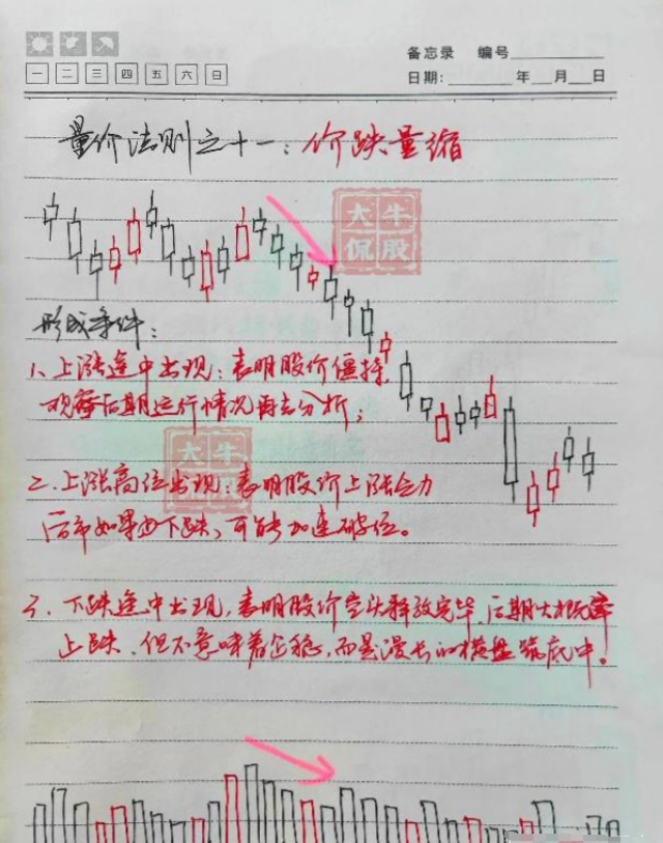 备忘录 编号
一 二 三 四 五 六 日
日期: 年 月 日
量价法则之十一：价跌量缩
大牛
侃股
形成条件：
1、上涨途中出现：表明股价僵持，
观察后期运行情况再去分析；
大牛
2、上涨高位出现：表明股价上涨乏力
后市如果出下跌、可能加速破位。
3、下跌途中出现，表明股价空头释放完毕，后期大概率
止跌，但不意味着企稳，而是漫长的横盘筑底中！